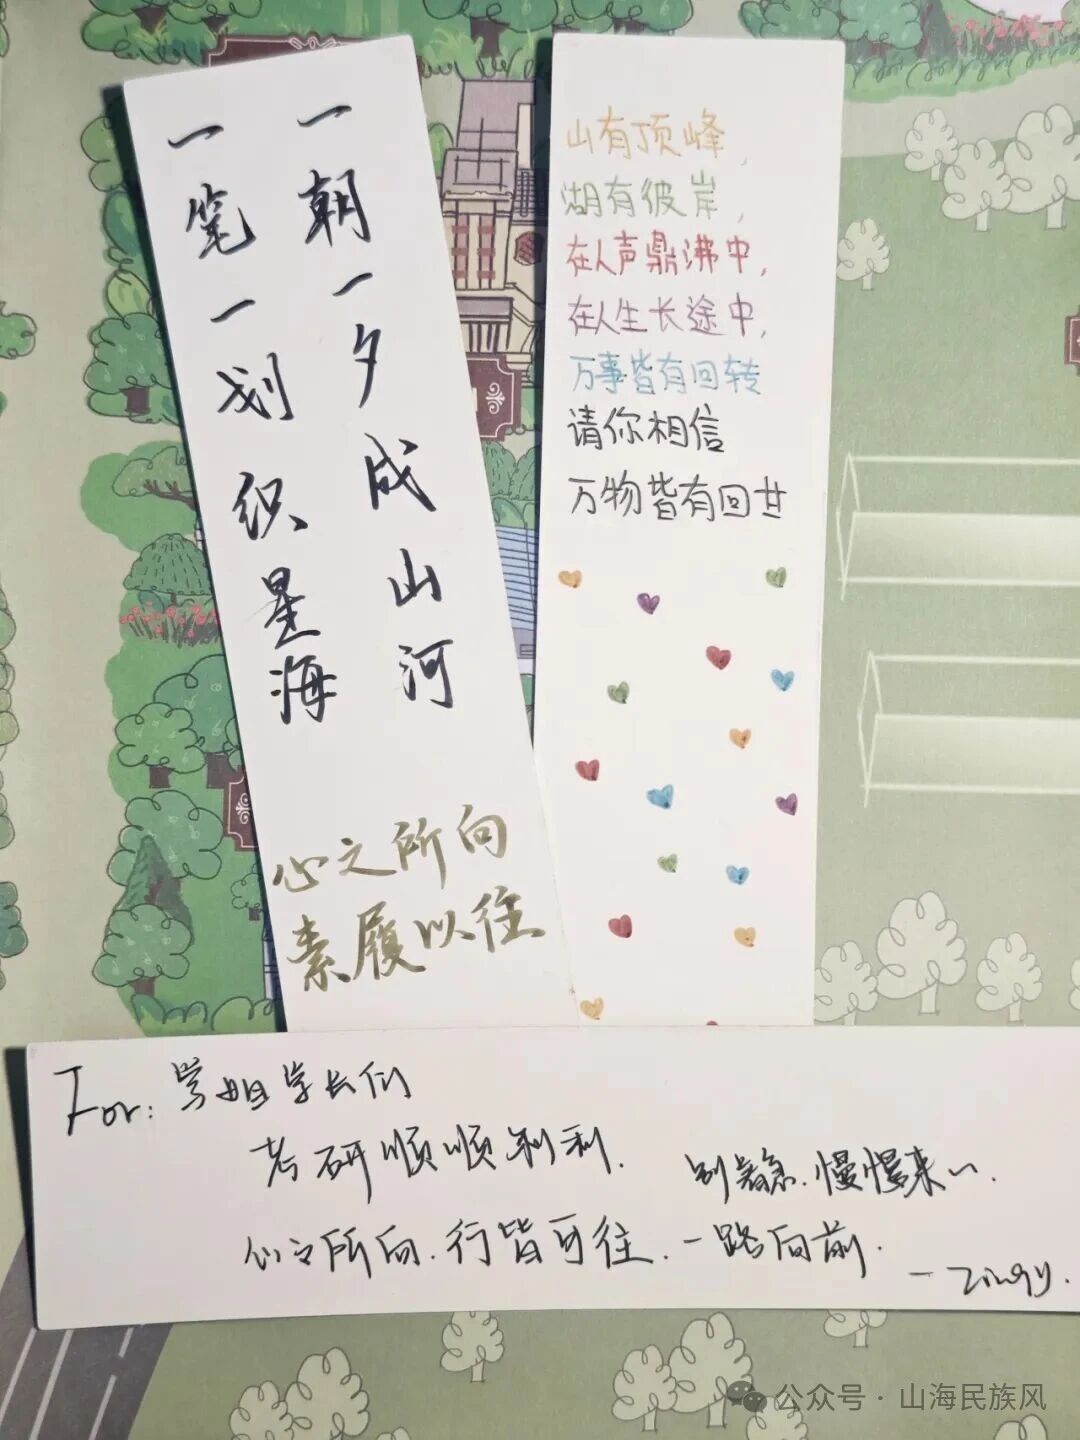 一朝一夕成山河
一笔一划织星海
心之所向
素履以往
山有顶峰，
湖有彼岸，
在人声鼎沸中，
在人生长途中，
万事皆有回转
请你相信
万物皆有回甘
For: 学姐学长们
考研顺顺利利.
别着急.慢慢来~.
心之所向.行皆可往.一路向前.
公众号·山海民族风